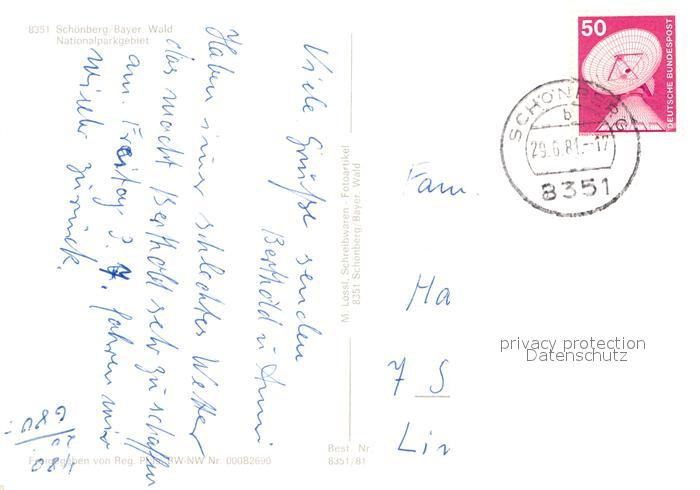 8351 Schönberg/Bayer. Wald
Nationalparkgebiet
Viele Grüße senden
Berthold u. Anni
Haben immer schlechtes Wetter
das macht Berthold sehr zu schaffen
am Freitag 3. 7. fahren wir
wieder zurück.
M. Lössl, Schreibwaren - Fotoartikel
8351 Schönberg/Bayer. Wald
50
DEUTSCHE BUNDESPOST
SCHÖNBERG
b
29.6.81.-17
8351
Fam.
Ha
7 S
Lin
privacy protection
Datenschutz
Freigegeben von Reg. NW-NW Nr. 000B2690
Best. Nr.
8351/81